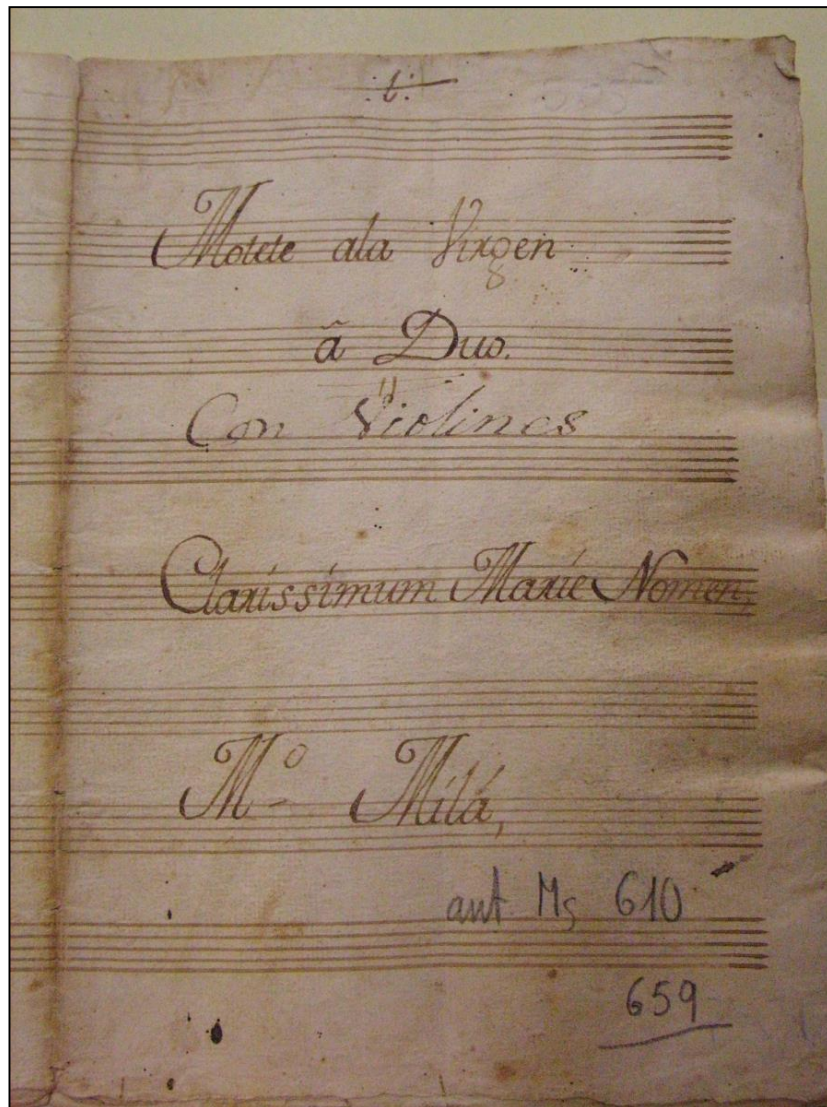 Motete ala Virgen
ã Duo.
Con Violines
Clarissimum Marie Nomen,
Mº Milá,
ant Ms 610
659